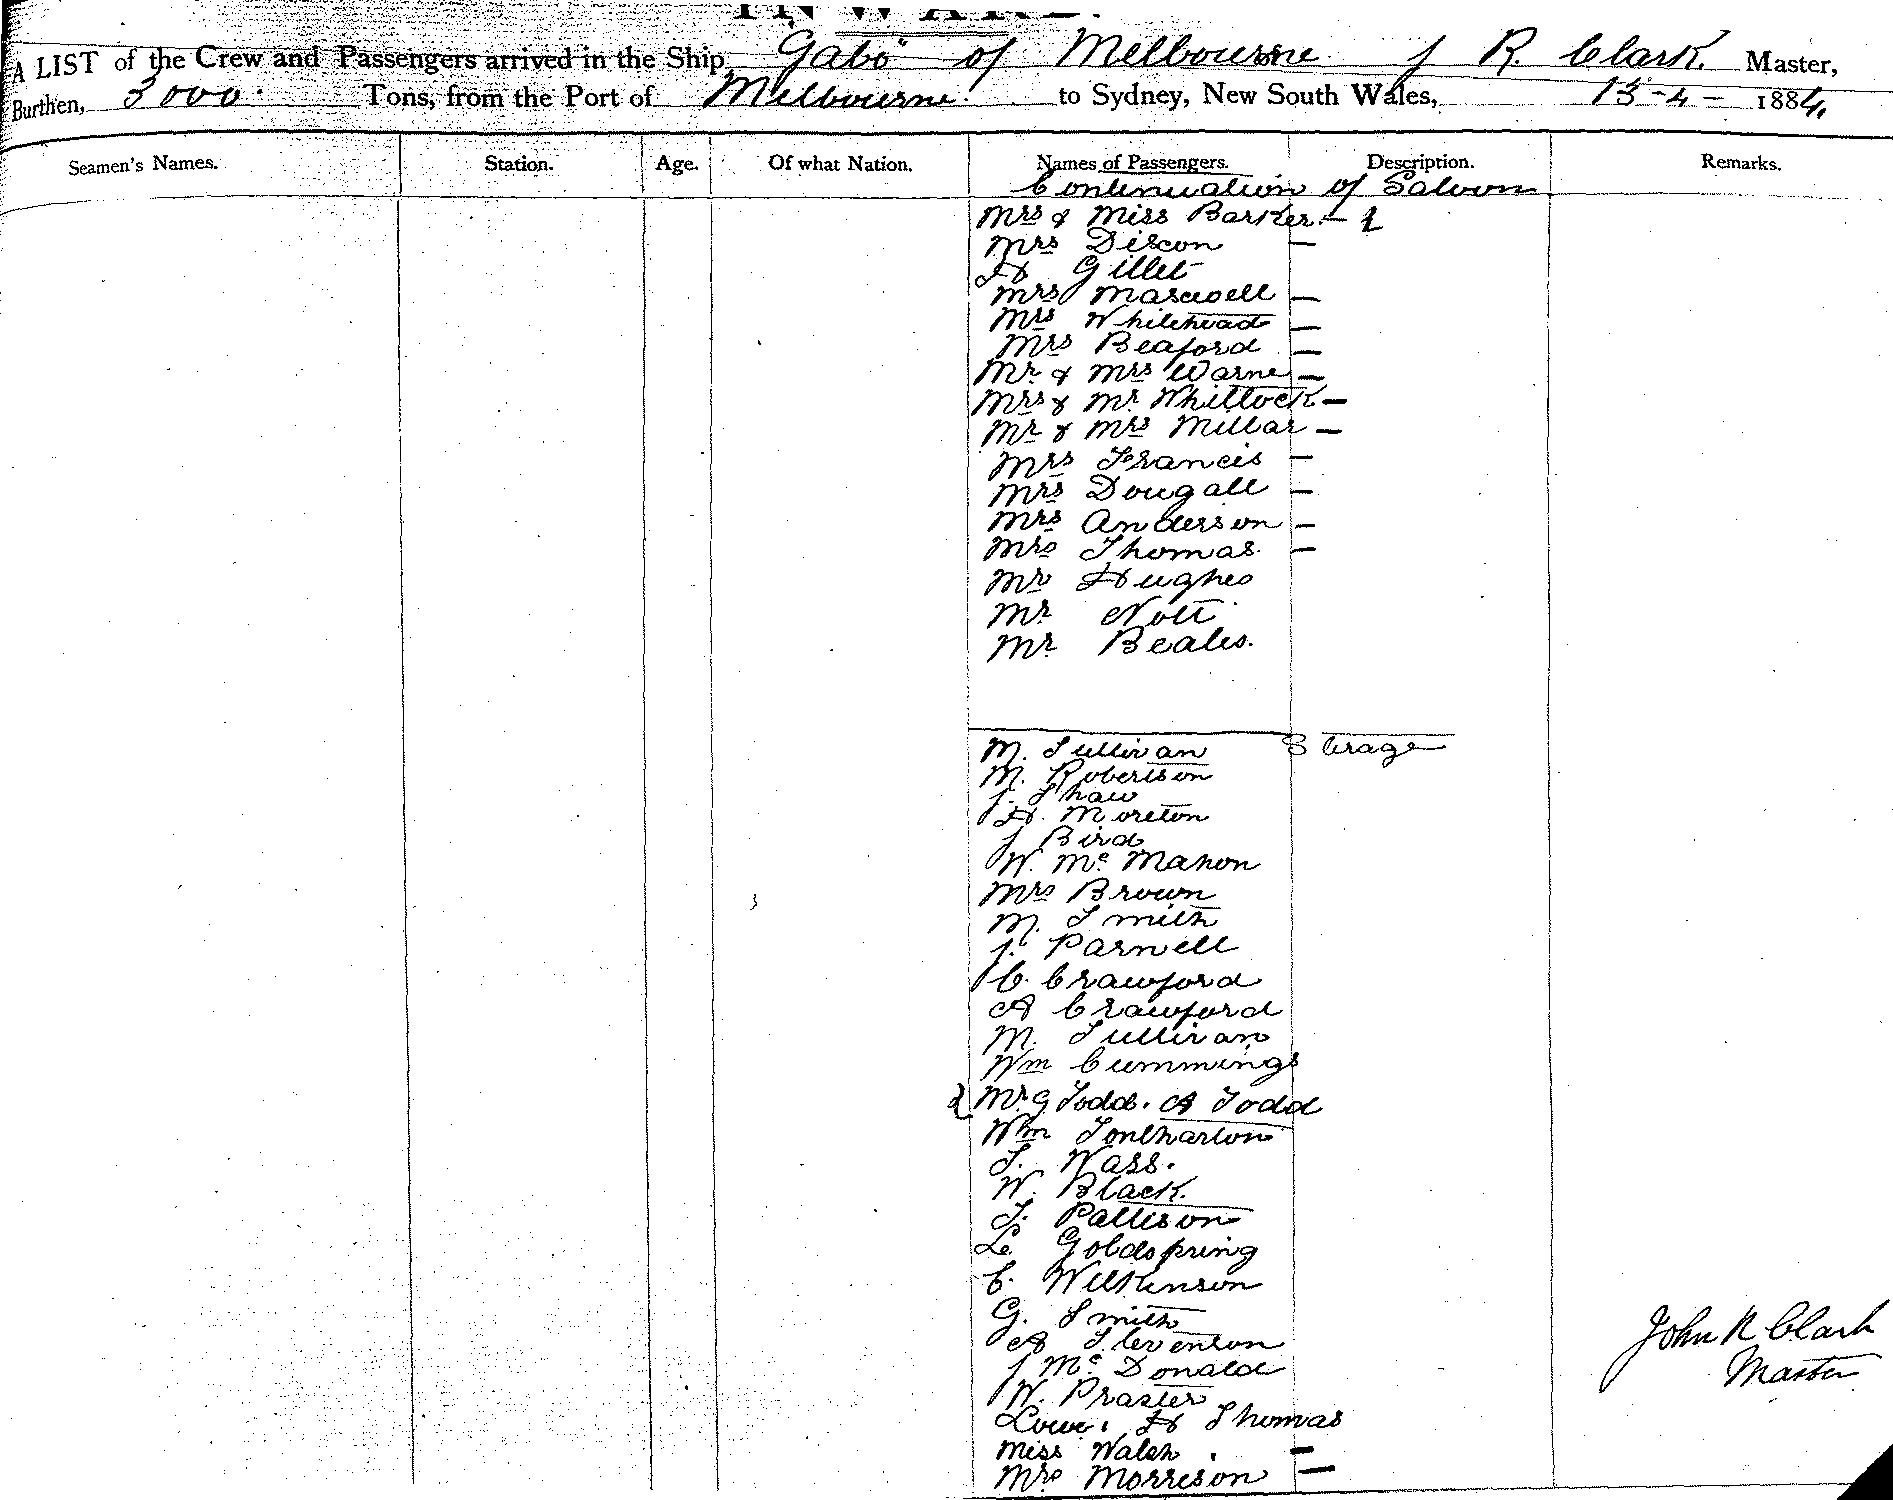 INWARD.
A LIST of the Crew and Passengers arrived in the Ship Gabo of Melbourne J R. Clark. Master,
Burthen, 3000. Tons, from the Port of Melbourne. to Sydney, New South Wales, 13-4- 1884.
Seamen's Names. Station. Age. Of what Nation. Names of Passengers. Description. Remarks.
Continuation of Saloon
Mrs & Miss Barker. - 2
Mrs Dixon -
H Gillet
Mrs Maxwell -
Mrs Whitehead -
Mrs Beaford -
Mr & Mrs Warne -
Mrs & Mr Whittock -
Mr & Mrs Millar -
Mrs Francis -
Mrs Dougall -
Mrs Anderson -
Mrs Thomas. -
Mr Hughes
Mr Nott
Mr Beales.
M. Sullivan Strage
M. Robertson
J. Shaw
H. Moreton
J Bird
W. Mc Mahon
Mrs Brown
M. Smith
J. Parnell
C. Crawford
A Crawford
M. Sullivan
Wm Cummings
2 Mr G Todd. A Todd
Wm
S. Wass.
W. Black.
J. Pattison
Le Goldspring
C. Wilkinson
G. Smith
A Steventon
J Mc Donald
W. Praster
Lowe. H Thomas
Miss Walsh. -
Mrs Morrison -
John R Clark
Master